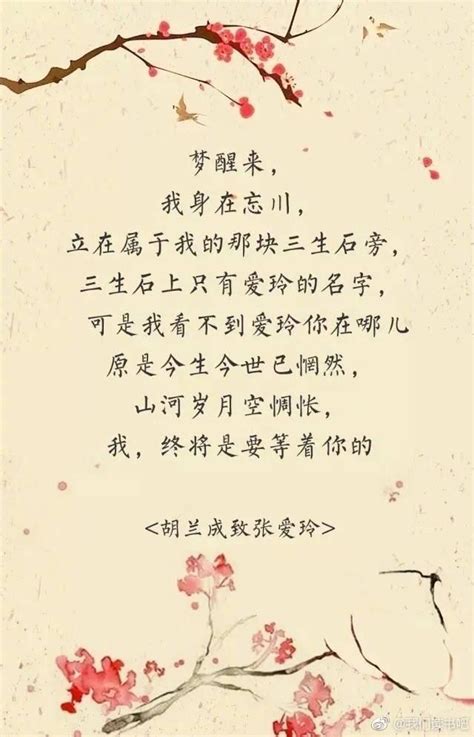 梦醒来，
我身在忘川，
立在属于我的那块三生石旁，
三生石上只有爱玲的名字，
可是我看不到爱玲你在哪儿
原是今生今世已惘然，
山河岁月空惆怅，
我，终将是要等着你的
<胡兰成致张爱玲>
@我们爱书吧